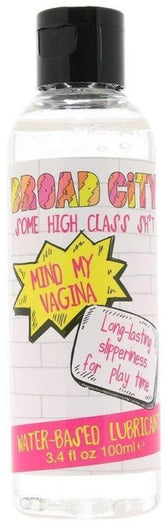 BROAD CITY
SOME HIGH CLASS SH*T
MIND MY
VAGINA
Long-lasting
slipperiness
for play time
WATER-BASED LUBRICANT
3.4 fl oz 100ml e